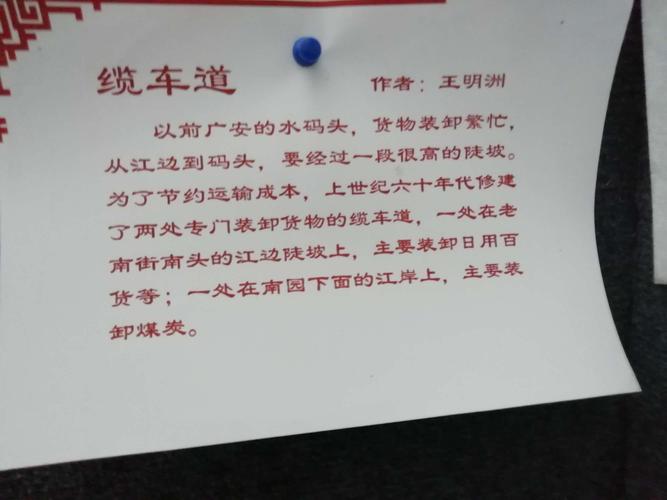 缆车道 作者：王明洲
以前广安的水码头，货物装卸繁忙，
从江边到码头，要经过一段很高的陡坡。
为了节约运输成本，上世纪六十年代修建
了两处专门装卸货物的缆车道，一处在老
南街南头的江边陡坡上，主要装卸日用百
货等；一处在南园下面的江岸上，主要装
卸煤炭。